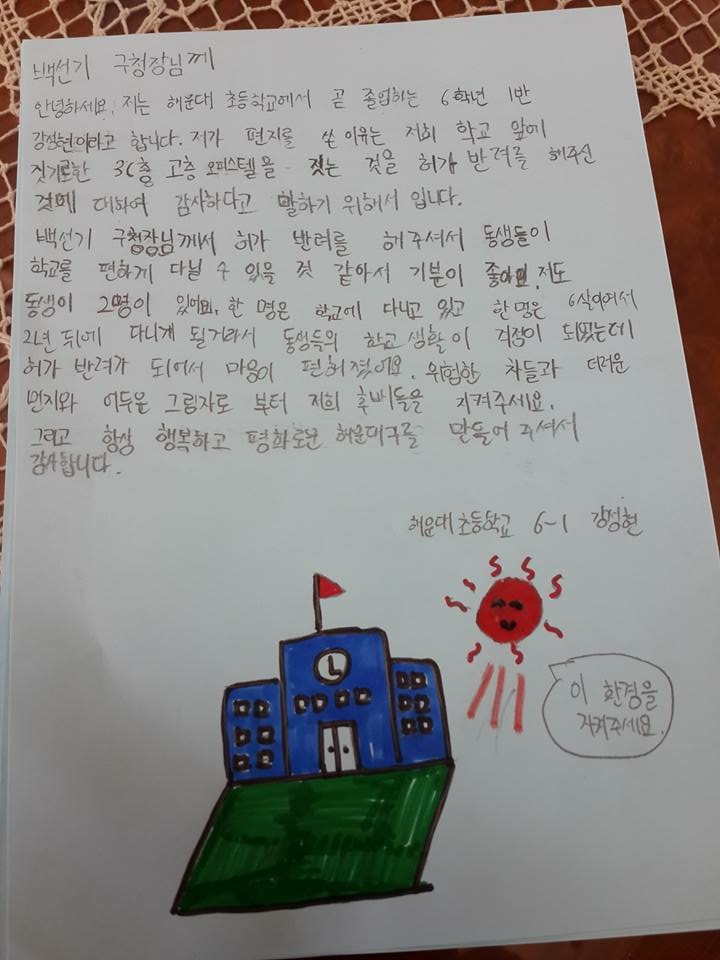 백선기 구청장님께
안녕하세요. 저는 해운대 초등학교에서 곧 졸업하는 6학년 1반
강정현이라고 합니다. 저가 편지를 쓴 이유는 저희 학교 앞에
짓기로한 36층 고층 오피스텔을 짓는 것을 허가 반려를 해주신
것에 대하여 감사하다고 말하기 위해서 입니다.
백선기 구청장님께서 허가 반려를 해주셔서 동생들이
학교를 편하게 다닐 수 있을 것 같아서 기분이 좋아요. 저도
동생이 2명이 있어요. 한 명은 학교에 다니고 있고 한명은 6살이여서
2년 뒤에 다니게 될거라서 동생들의 학교생활이 걱정이 되었는데
허가 반려가 되어서 마음이 편해졌어요. 위험한 차들과 더러운
먼지와 어두운 그림자로 부터 저희 후배들을 지켜주세요.
그리고 항상 행복하고 평화로운 해운대구를 만들어 주셔서
감사합니다.
해운대 초등학교 6-1 강정현
이 환경을
지켜주세요.